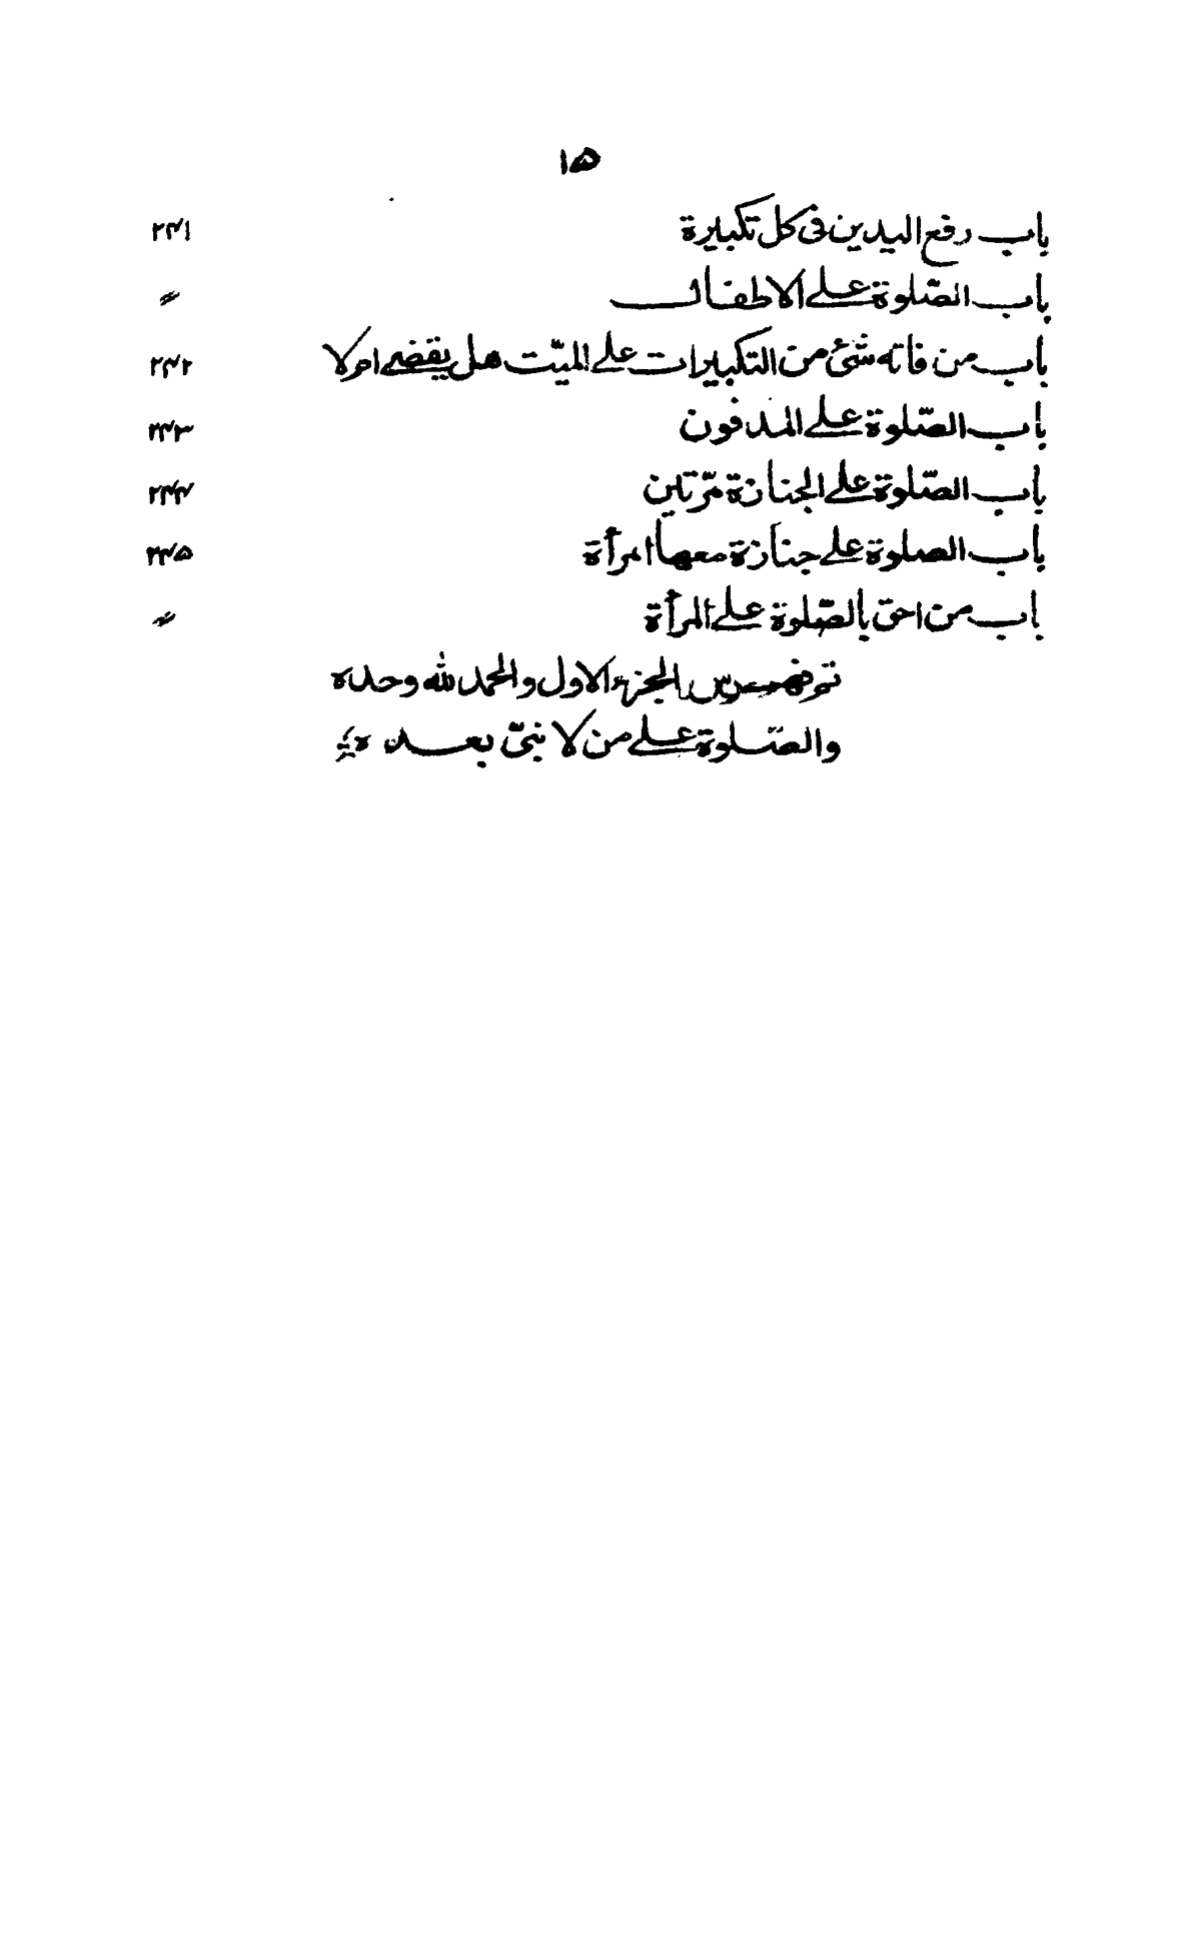 ۱۵
باب رفع اليدين فى كل تكبيرة ۲۴۱
باب الصّلوة علے الاطفال 〃
باب من فاته شئ من التكبيرات علے الميّت هل يقضے ام لا ۲۴۲
باب الصّلوة علے المدفون ۲۴۳
باب الصّلوة علے الجنازة مرّتين ۲۴۴
باب الصلوة علے جنازة معها امرأة ۲۴۵
باب من احق بالصّلوة علے المرأة 〃
تم فهرس الجزء الاول والحمد لله وحده
والصّلوة علے من لا نبىّ بعده